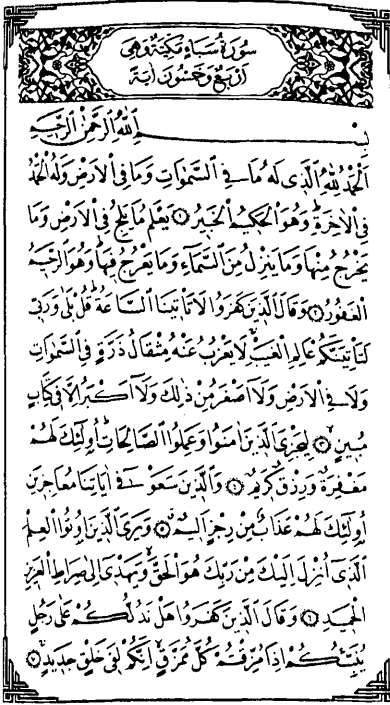 سُورَةُ سَبَاءٍ مَكِّيَّةٌ وَهِيَ
اَرْبَعٌ وَخَمْسُونَ اٰيَةً
بِسْمِ اللّٰهِ الرَّحْمٰنِ الرَّحِيمِ
اَلْحَمْدُ لِلّٰهِ الَّذٖى لَهُ مَا فِى السَّمٰوَاتِ وَمَا فِى الْاَرْضِ وَلَهُ الْحَمْدُ
فِى الْاٰخِرَةِ وَهُوَ الْحَكٖيمُ الْخَبٖيرُ ١ يَعْلَمُ مَا يَلِجُ فِى الْاَرْضِ وَمَا
يَخْرُجُ مِنْهَا وَمَا يَنْزِلُ مِنَ السَّمَاءِ وَمَا يَعْرُجُ فٖيهَا وَهُوَ الرَّحٖيمُ
الْغَفُورُ ٢ وَقَالَ الَّذٖينَ كَفَرُوا لَا تَاْتٖينَا السَّاعَةُ قُلْ بَلٰى وَرَبّٖى
لَتَاْتِيَنَّكُمْ عَالِمِ الْغَيْبِ لَا يَعْزُبُ عَنْهُ مِثْقَالُ ذَرَّةٍ فِى السَّمٰوَاتِ
وَلَا فِى الْاَرْضِ وَلَا اَصْغَرُ مِنْ ذٰلِكَ وَلَا اَكْبَرُ اِلَّا فٖى كِتَابٍ
مُبٖينٍ ٣ لِيَجْزِىَ الَّذٖينَ اٰمَنُوا وَعَمِلُوا الصَّالِحَاتِ اُولٰئِكَ لَهُمْ
مَغْفِرَةٌ وَرِزْقٌ كَرٖيمٌ ٤ وَالَّذٖينَ سَعَوْ فٖى اٰيَاتِنَا مُعَاجِزٖينَ
اُولٰئِكَ لَهُمْ عَذَابٌ مِنْ رِجْزٍ اَلٖيمٌ ٥ وَيَرَى الَّذٖينَ اُوتُوا الْعِلْمَ
الَّذٖى اُنْزِلَ اِلَيْكَ مِنْ رَبِّكَ هُوَ الْحَقَّ وَيَهْدٖى اِلٰى صِرَاطِ الْعَزٖيزِ
الْحَمٖيدِ ٦ وَقَالَ الَّذٖينَ كَفَرُوا هَلْ نَدُلُّكُمْ عَلٰى رَجُلٍ
يُنَبِّئُكُمْ اِذَا مُزِّقْتُمْ كُلَّ مُمَزَّقٍ اِنَّكُمْ لَفٖى خَلْقٍ جَدٖيدٍ ٧